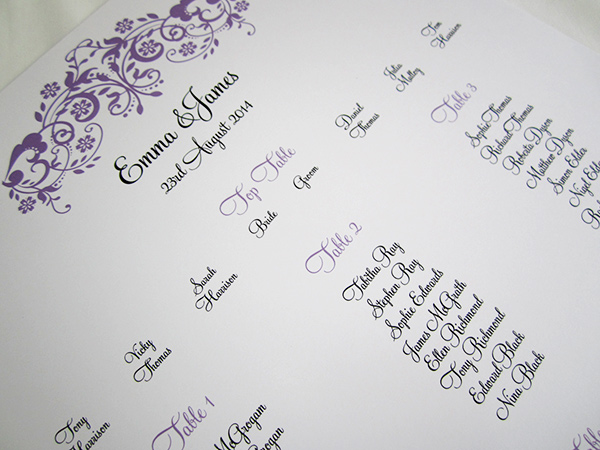 Emma & James
23rd August 2014
Top Table
Tony
Harrison
Vicky
Thomas
Sarah
Harrison
Bride
Groom
Daniel
Thomas
Julia
Malley
Tom
Harrison
Table 1
McGrogan
Grogan
Table 2
Tabitha Ray
Stephen Ray
Sophie Edwards
James McGrath
Ellen Richmond
Tony Richmond
Edward Black
Nina Black
Table 3
Sophie Thomas
Richard Thomas
Roberta Dyson
Matthew Dyson
Simon Elder
Nigel Elder